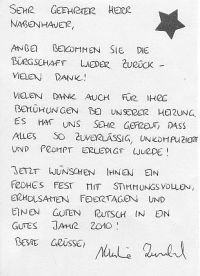 SEHR GEEHRTER HERR
NABENHAUER,
ANBEI BEKOMMEN SIE DIE
BÜRGSCHAFT WIEDER ZURÜCK -
VIELEN DANK!
VIELEN DANK AUCH FÜR IHRE
BEMÜHUNGEN BEI UNSERER HEIZUNG.
ES HAT UNS SEHR GEFREUT, DASS
ALLES SO ZUVERLÄSSIG, UNKOMPLIZIERT
UND PROMPT ERLEDIGT WURDE!
JETZT WÜNSCHEN IHNEN EIN
FROHES FEST MIT STIMMUNGSVOLLEN,
ERHOLSAMEN FEIERTAGEN UND
EINEN GUTEN RUTSCH IN EIN
GUTES JAHR 2010!
BESTE GRÜSSE,